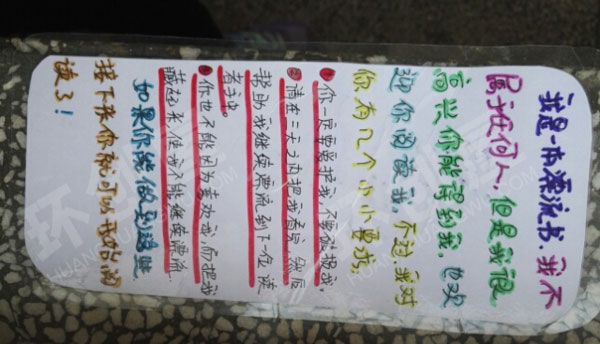 我是一本漂流书.我不
属于任何人,但是我很
高兴你能得到我,也欢
迎你阅读我,不过我对
你有几个小小要求。
①你一定要爱护我,不要损我,
②请在三天之内把我看完,然后
帮助我继续漂流到下一位读
者手中.
③你也不能因为喜欢我,而把我
藏起来,使我不能继续漂流
如果你能做到这些,
接下来你就可以开始阅
读了!
环创屋